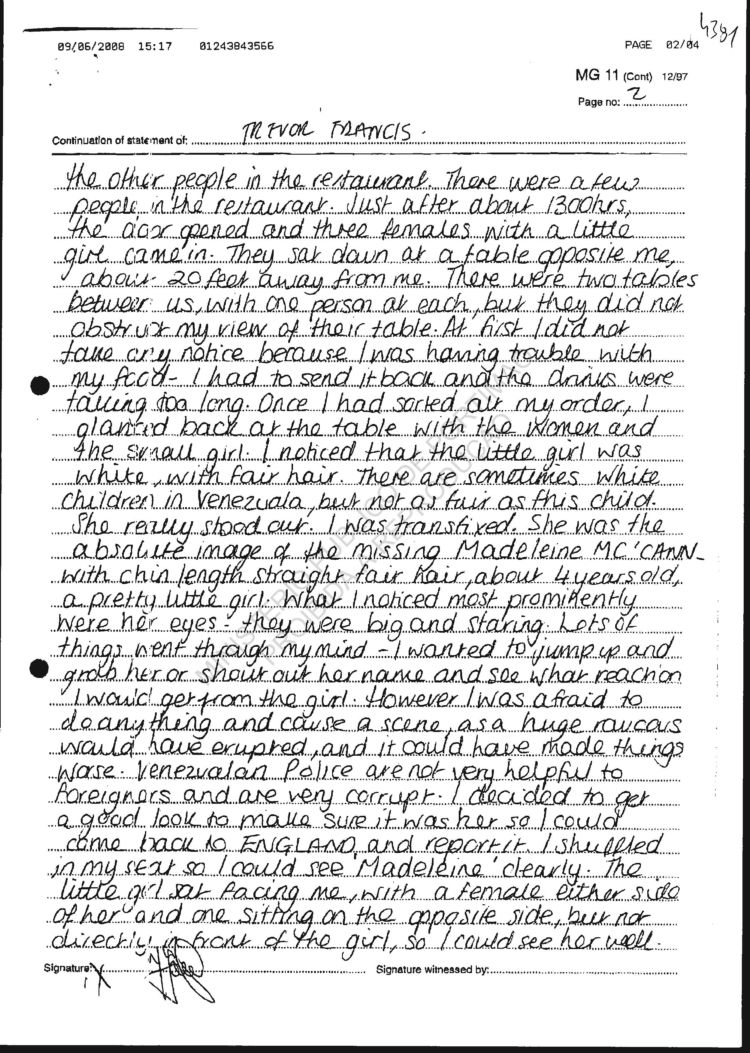 4381
09/06/2008 15:17 01243843566 PAGE 02/04
MG 11 (Cont) 12/97
Page no: 2
Continuation of statement of: TREVOR FRANCIS.
the other people in the restaurant. There were a few
people in the restaurant. Just after about 1300hrs,
the door opened and three females with a little
girl came in. They sat down at a table opposite me,
about 20 feet away from me. There were two tables
between us, with one person at each, but they did not
obstruct my view of their table. At first I did not
take any notice because I was having trouble with
my food - I had to send it back and the drinks were
taking too long. Once I had sorted out my order, I
glanced back at the table with the women and
the small girl. I noticed that the little girl was
white, with fair hair. There are sometimes white
children in Venezuala, but not as fair as this child.
She really stood out. I was transfixed. She was the
absolute image of the missing Madeleine MC'CANN-
with chin length straight fair hair, about 4 years old,
a pretty little girl. What I noticed most prominently
were her eyes - they were big and staring. Lots of
things went through my mind - I wanted to jump up and
grab her or shout out her name and see what reaction
I would get from the girl. However I was afraid to
do anything and cause a scene, as a huge raucous
would have erupted, and it could have made things
worse. Venezualan Police are not very helpful to
foreigners and are very corrupt. I decided to get
a good look to make sure it was her so I could
come back to ENGLAND and report it. I shuffled
in my seat so I could see 'Madeleine' clearly. The
little girl sat facing me, with a female either side
of her and one sitting on the opposite side, but not
directly in front of the girl, so I could see her well.
Signature: Signature witnessed by: